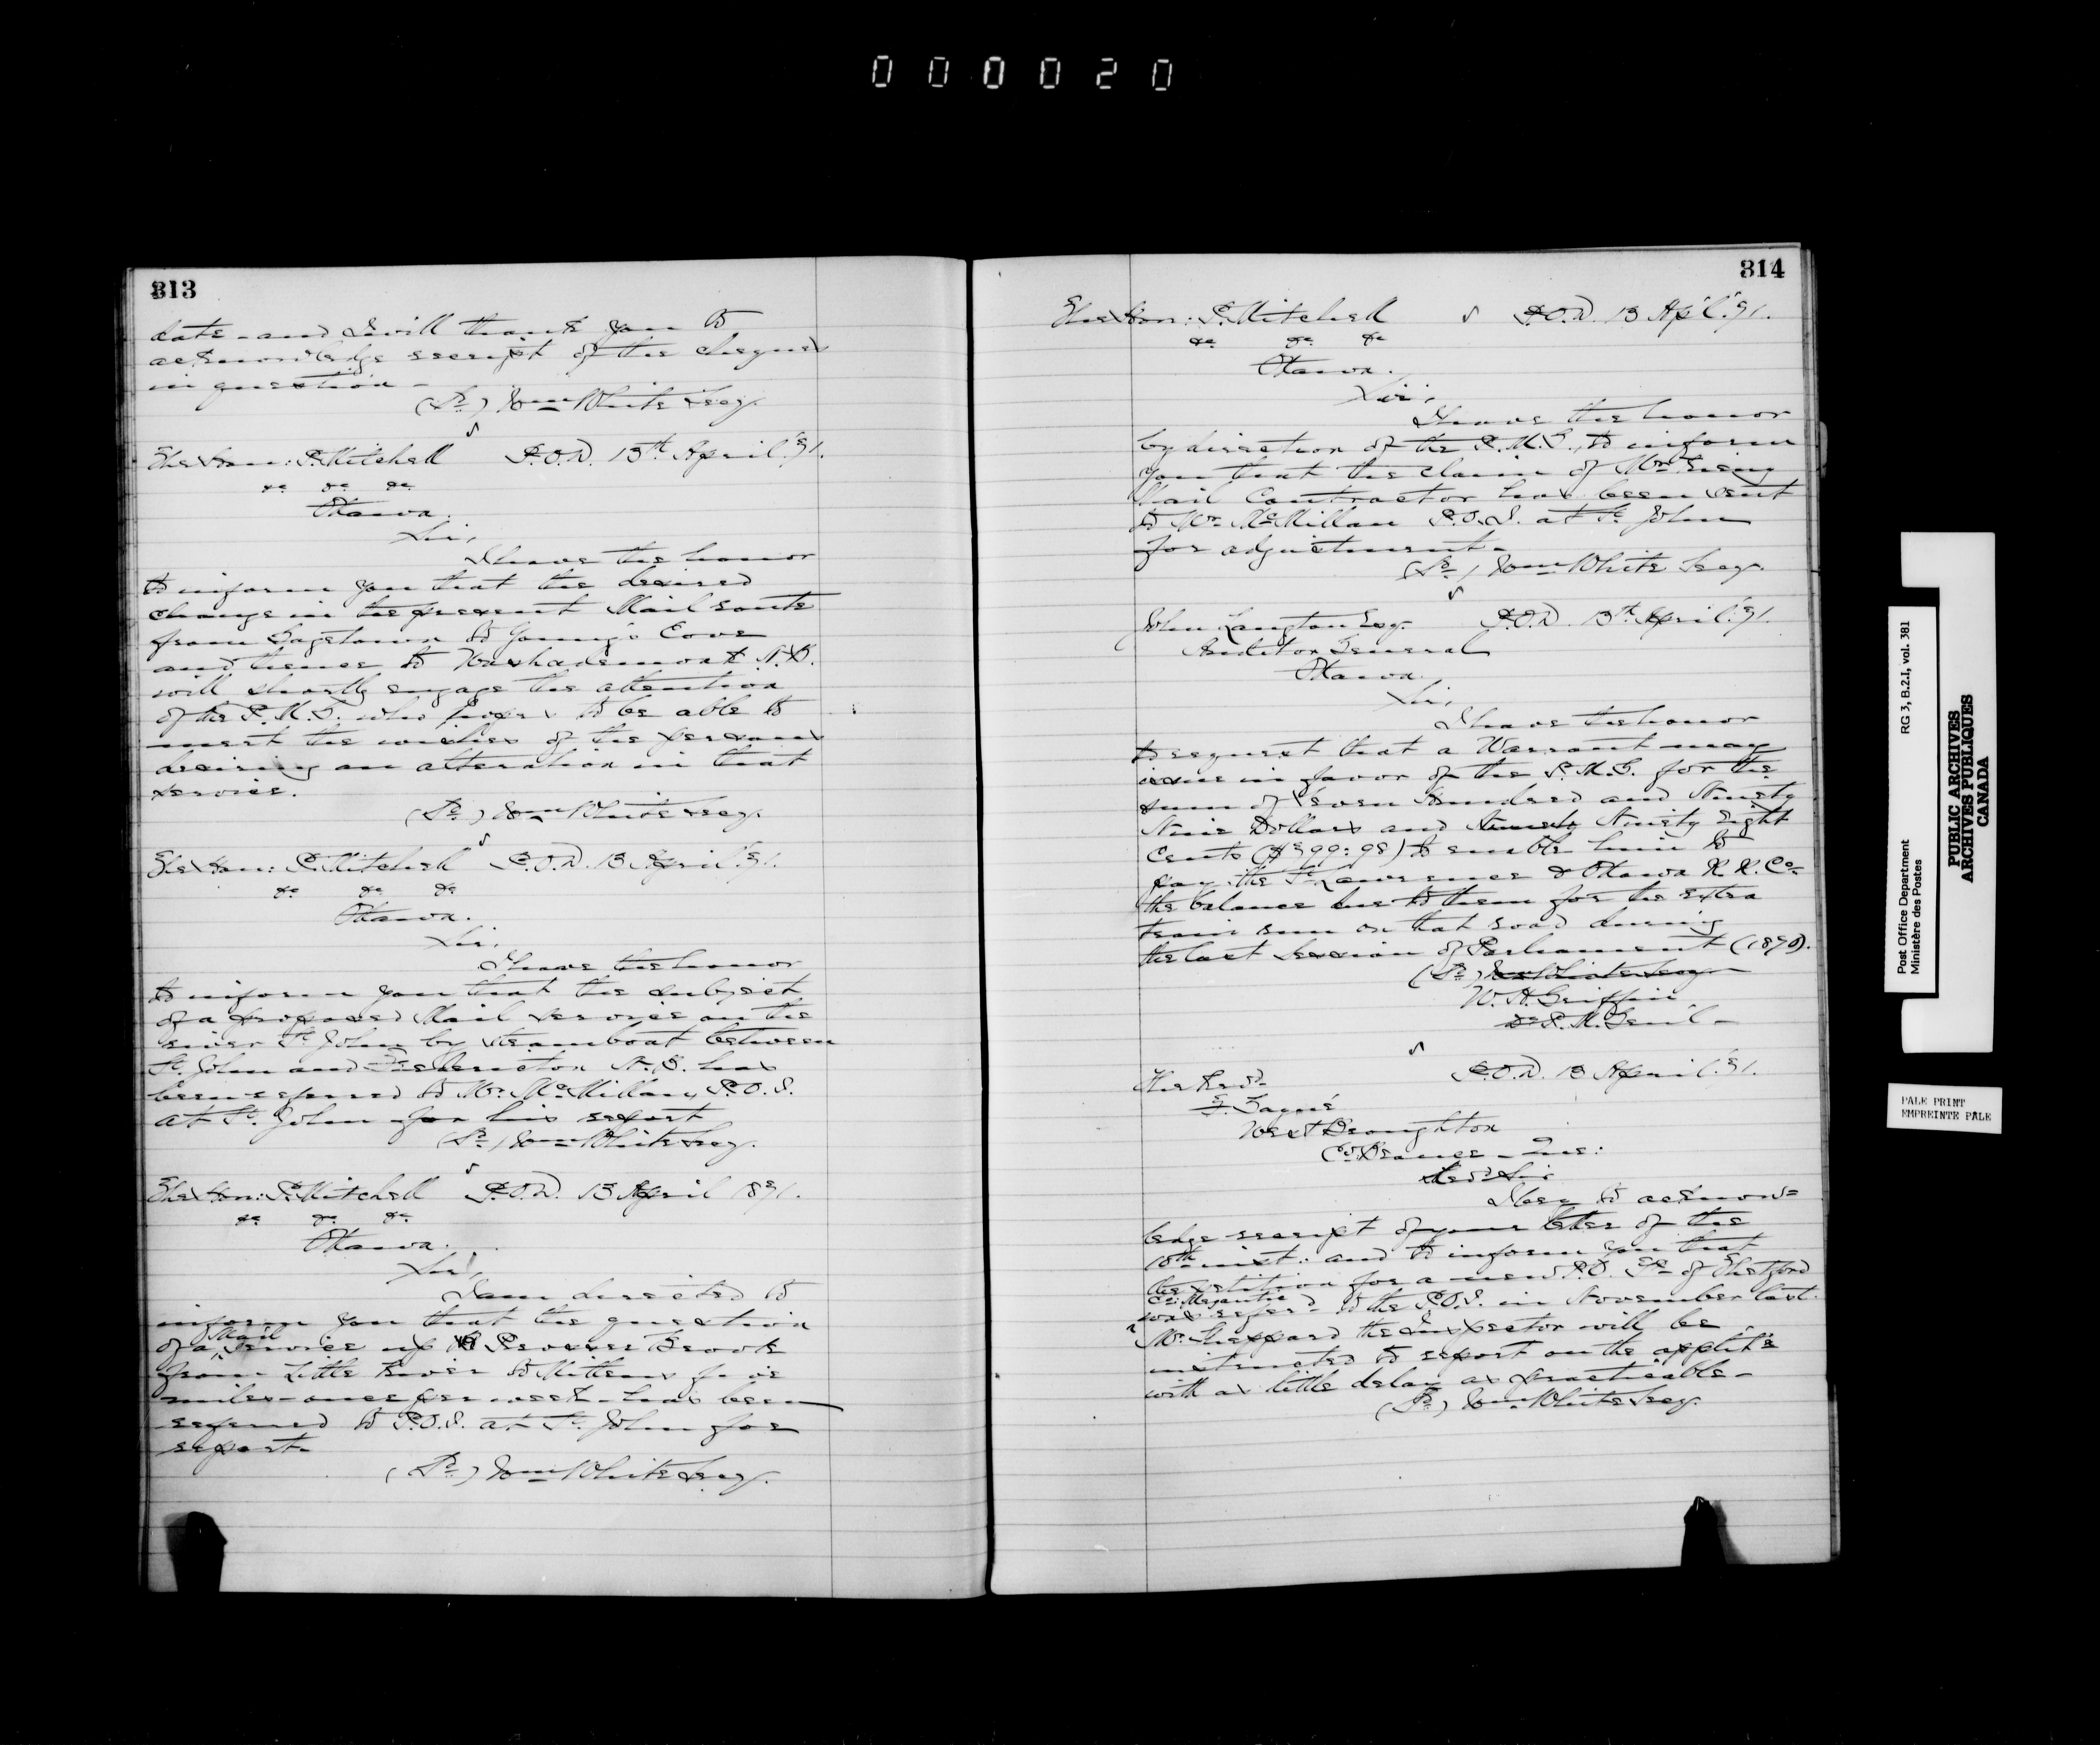 000020
313
date - and I will thank you to
acknowledge receipt of the cheques
in question -
(Sd.) Wm White Secy.
The Hon: P. Mitchell P.O.D. 13th April '71.
&c &c &c
Ottawa.
Sir,
I have the honor
to inform you that the desired
change in the present Mail route
from Gagetown to Young's Cove
and thence to Washademoak N.B.
will shortly engage the attention
of the P.M.G. who hopes to be able to
meet the wishes of the persons
desiring an alteration in that
service.
(Sd.) Wm White Secy.
The Hon: P. Mitchell P.O.D. 13 April '71.
&c &c &c
Ottawa.
Sir,
I have the honor
to inform you that the subject
of a proposed Mail service on the
river St John by steamboat between
St. John and Fredericton N.B. has
been referred to Mr. McMillan, P.O.I.
at St. John for his report
(Sd.) Wm White Secy.
The Hon: P. Mitchell P.O.D. 13 April 1871.
&c &c &c
Ottawa.
Sir,
I am directed to
inform you that the question
of a Mail service up Brook
from Little River to five
miles - once per week - has been
referred to P.O.I. at St. John for
report.
(Sd.) Wm White Secy.
314
The Hon: P. Mitchell P.O.D. 13 Ap'l '71.
&c &c &c
Ottawa.
Sir,
I have the honor
by direction of the P.M.G., to inform
you that the claim of Mr
Mail Contractor has been sent
to Mr. McMillan P.O.I. at St John
for adjustment -
(Sd.) Wm White Secy.
John Langton Esq. P.O.D. 13th April '71.
Auditor General
Ottawa.
Sir,
I have the honor
to request that a Warrant may
issue in favor of the P.M.G. for the
sum of Seven Hundred and Ninety
Nine Dollars and Ninety Ninety Eight
Cents ($799:98) to enable him to
pay the St Lawrence & Ottawa R.R. Co.
the balance due to them for the extra
train run on that road during
the last Session of Parliament (1870).
(Sd.) Wm White Secy
W.H. Griffin
D. P.M. Genl -
The Revd. P.O.D. 13 April '71.
West Broughton
Co. Beauce - Que:
Revd Sir
I beg to acknow=
ledge receipt of your letter of the
10th inst: and to inform you that
the petition for a new P.O. Tp of Thetford
Co: Megantic
was referd to the P.O.I. in November last.
Mr. Sheppard the Inspector will be
instructed to report on the applit'n
with as little delay as practicable -
(Sd.) Wm White Secy.
Post Office Department RG 3, B.2.I, vol. 381
Ministère des Postes
PUBLIC ARCHIVES
ARCHIVES PUBLIQUES
CANADA
PALE PRINT
EMPREINTE PALE